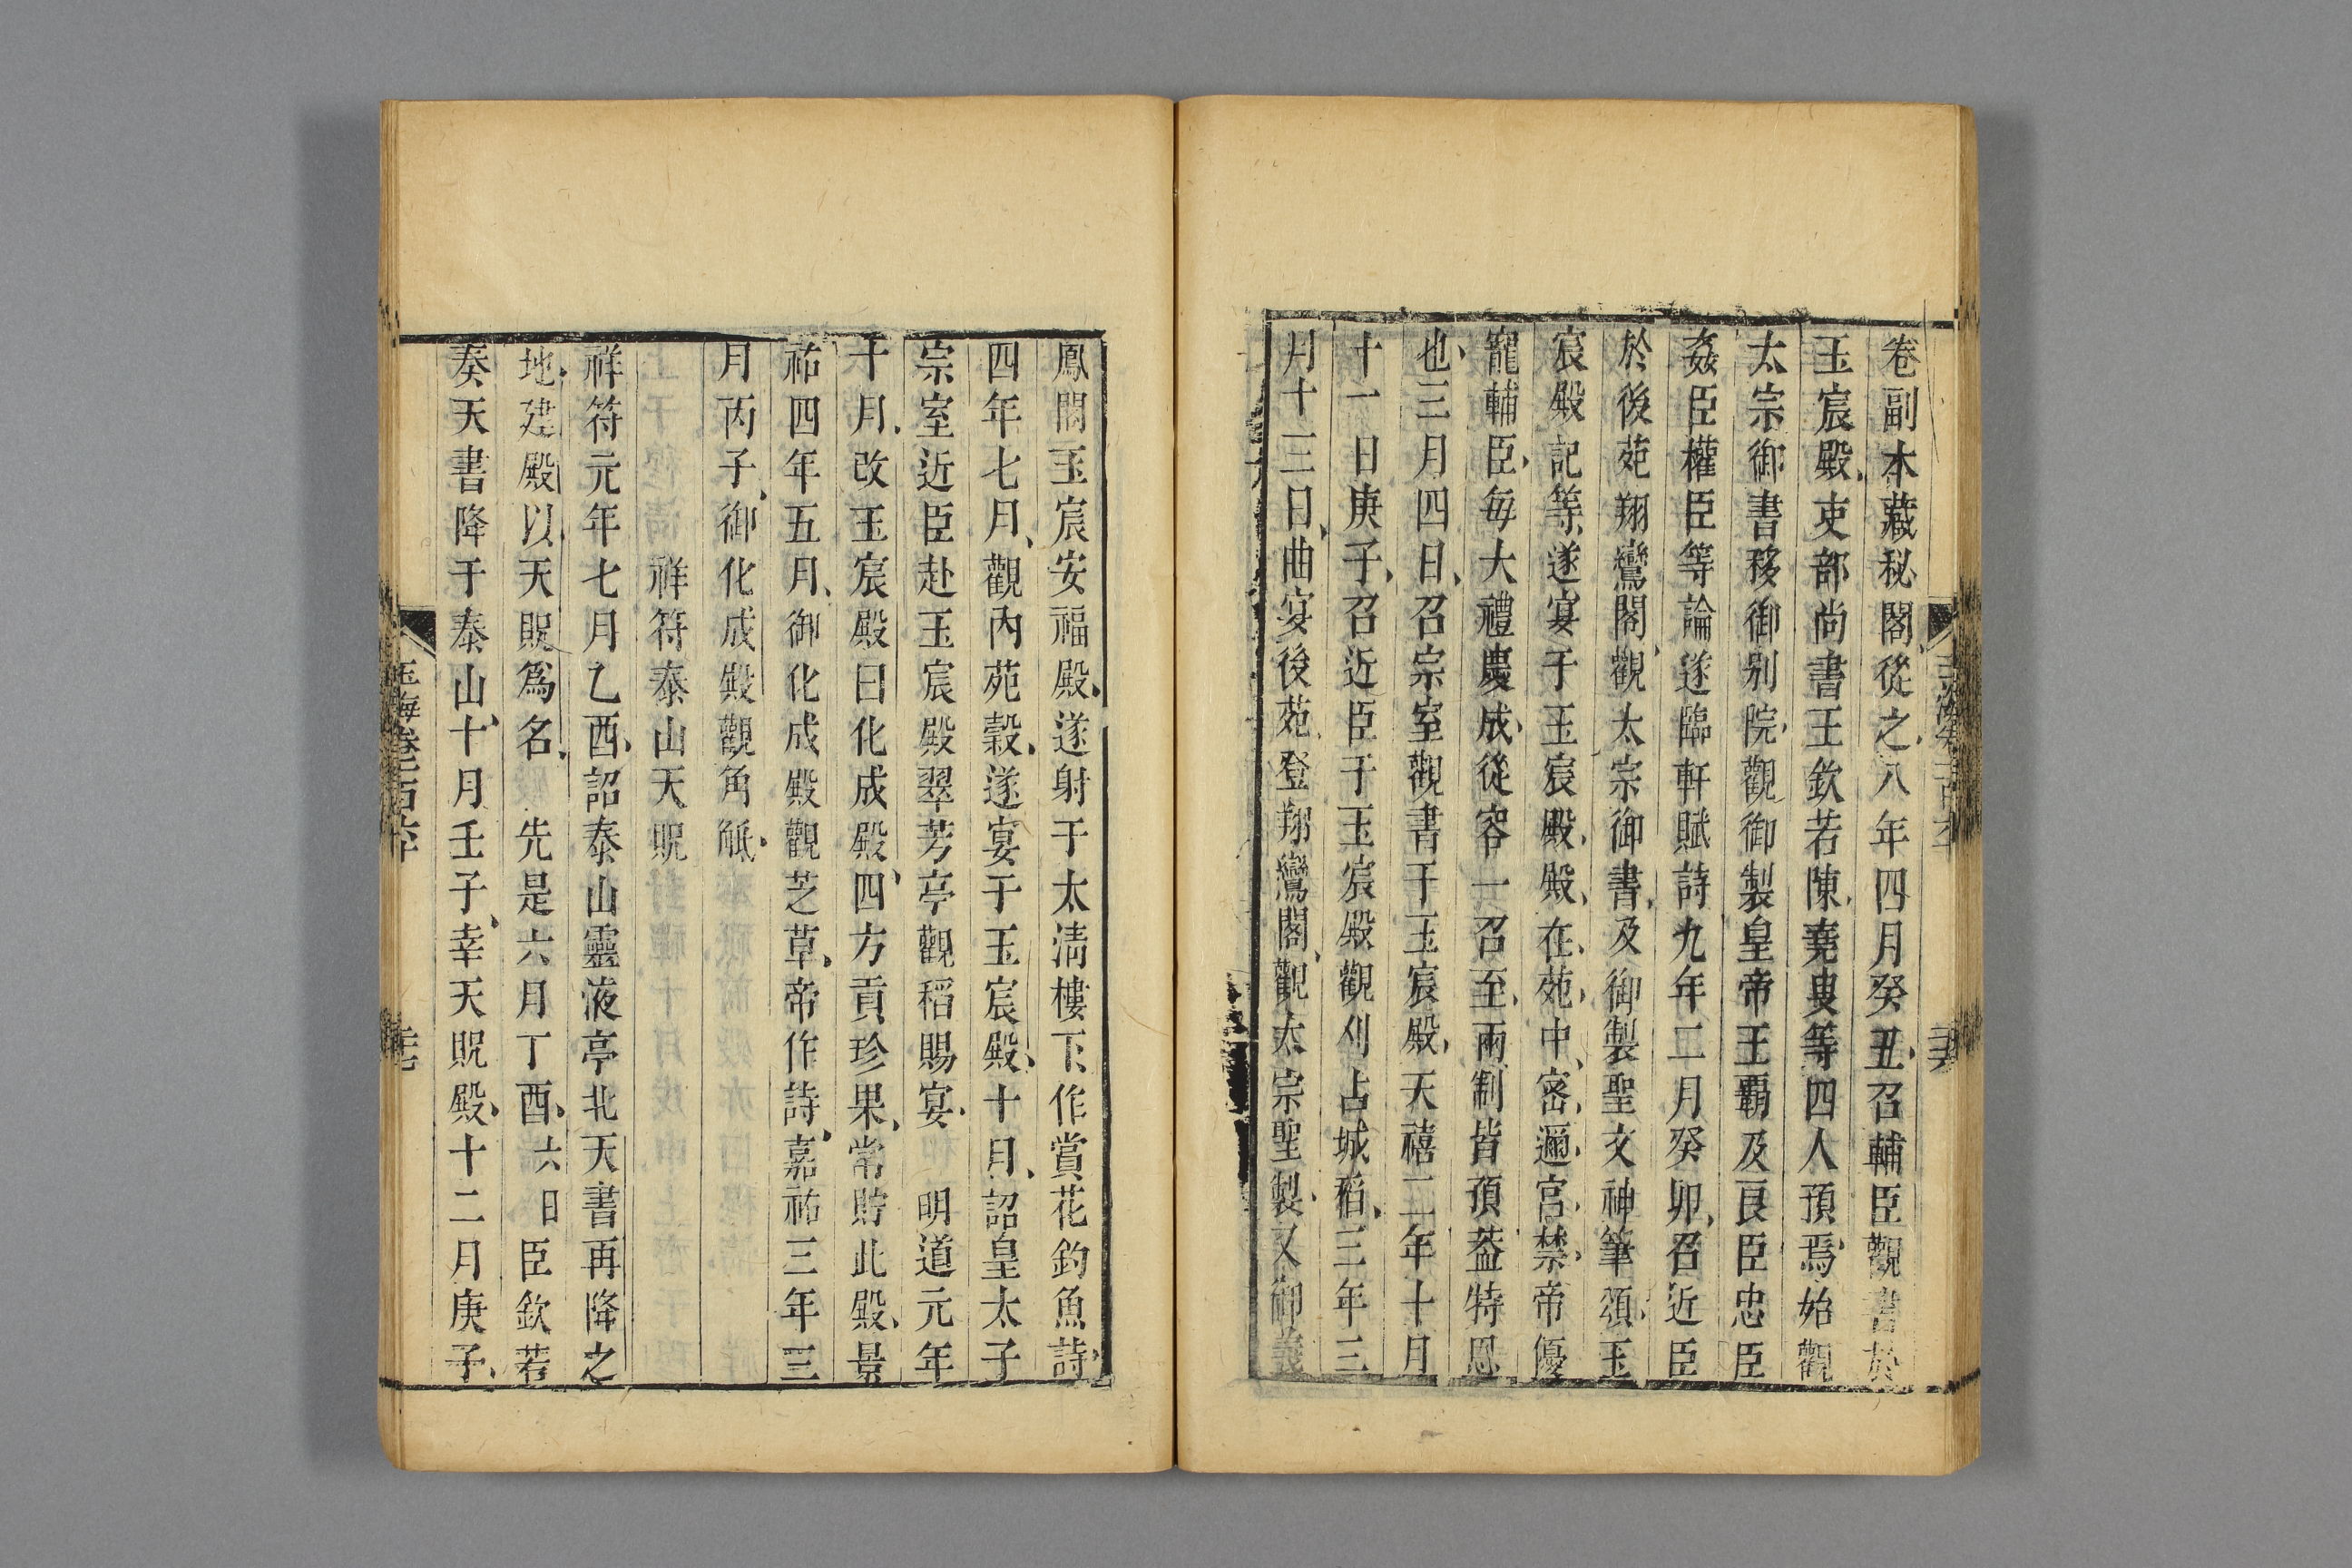 卷副本藏秘閣從之八年四月癸丑召輔臣觀書於
玉宸殿吏部尚書王欽若陳堯叟等四人預焉始觀
太宗御書移御别院觀御製皇帝王霸及良臣忠臣
姦臣權臣等論遂臨軒賦詩九年二月癸卯召近臣
於後苑翔鸞閣觀太宗御書及御製聖文神筆頌玉
宸殿記等遂宴于玉宸殿殿在苑中密邇宫禁帝優
寵輔臣每大禮慶成從容一召至兩制皆預葢特恩
也三月四日召宗室觀書于玉宸殿天禧二年十月
十一日庚子召近臣于玉宸殿觀刈占城稻三年三
月十三日曲宴後苑登翔鸞閣觀太宗聖製又御義
鳳閣玉宸安福殿遂射于太清樓下作賞花釣魚詩
四年七月觀内苑穀遂宴于玉宸殿十月詔皇太子
宗室近臣赴玉宸殿翠芳亭觀稻賜宴　明道元年
十月改玉宸殿曰化成殿四方貢珍果常貯此殿景
祐四年五月御化成殿觀芝草帝作詩嘉祐三年三
月丙子御化成殿觀角觝
祥符泰山天貺
祥符元年七月乙酉詔泰山靈液亭北天書再降之
地建殿以天貺爲名　先是六月丁酉六日臣欽若
奏天書降于泰山十月壬子幸天貺殿十二月庚子
玉海卷一百六十